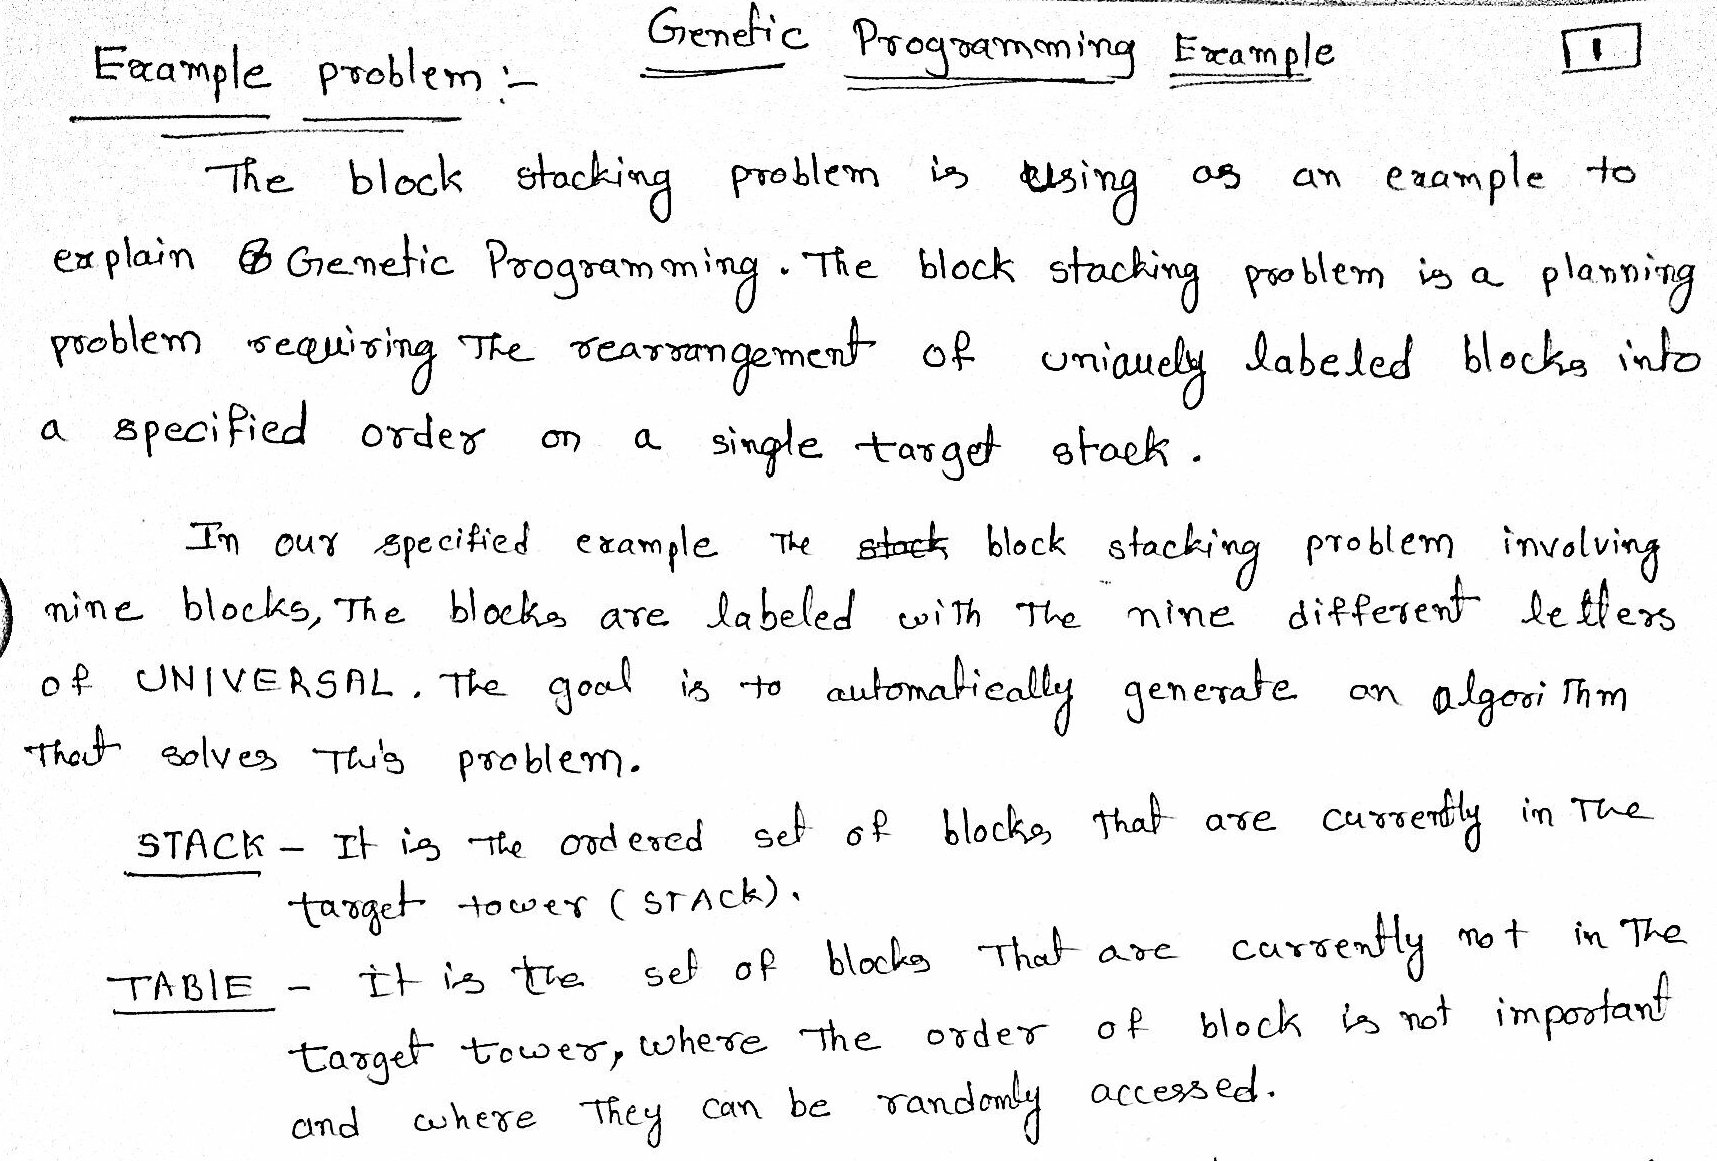 Genetic Programming Example
1
Example problem :-
The block stacking problem is using as an example to
explain Genetic Programming. The block stacking problem is a planning
problem requiring The rearrangement of uniquely labeled blocks into
a specified order on a single target stack.
In our specified example The stack block stacking problem involving
nine blocks, The blocks are labeled with The nine different letters
of UNIVERSAL. The goal is to automatically generate an algorithm
That solves This problem.
STACK - It is The ordered set of blocks that are currently in The
target tower (STACK).
TABLE - It is the set of blocks That are currently not in The
target tower, where The order of block is not important
and where They can be randomly accessed.